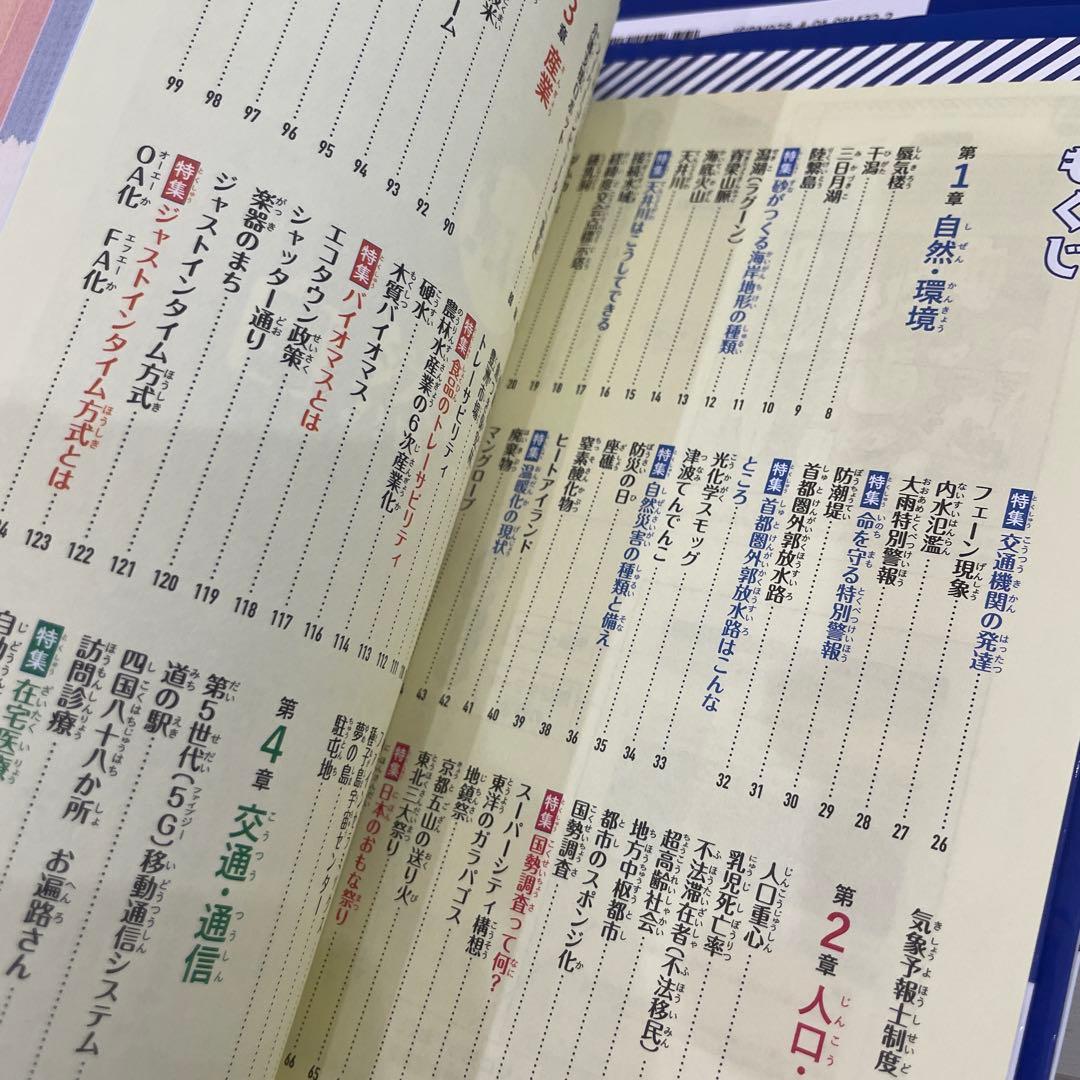 もくじ
第1章 自然・環境
蜃気楼 8
干潟 9
三日月湖 10
陸繋島 11
特集 砂がつくる海岸地形の種類 12
潟湖(ラグーン) 13
青梁山脈
海底火山
天井川
特集 天井川はこうしてできる
16
17
18
19
20
特集 交通機関の発達 26
フェーン現象 27
内水氾濫 28
大雨特別警報 29
特集 命を守る特別警報 30
防潮堤 31
首都圏外郭放水路 32
特集 首都圏外郭放水路はこんなところ
光化学スモッグ 33
津波てんでんこ 34
特集 自然災害の種類と備え 35
防災の日 36
座礁 38
窒素酸化物 39
ヒートアイランド 40
特集 温暖化の現状 41
廃棄物 42
マングローブ 43
気象予報士制度
第2章 人口・
人口重心
乳児死亡率
不法滞在者(不法移民)
超高齢社会
地方中枢都市
都市のスポンジ化
国勢調査
特集 国勢調査って何?
スーパーシティ構想
東洋のガラパゴス
地鎮祭
京都五山の送り火
東北三大祭り
特集 日本のおもな祭り
夢の島
駐屯地
65
66
第3章 産業
90
92
93
94
95
96
97
98
99
トレーサビリティ
特集 食品のトレーサビリティ
農林水産業の6次産業化 112
硬水 113
木質バイオマス 114
特集 バイオマスとは 116
エコタウン政策 117
シャッター通り 118
楽器のまち 119
ジャストインタイム方式 120
特集 ジャストインタイム方式とは 121
OA化 FA化 122
123
第4章 交通・通信
第5世代(5G)移動通信システム
道の駅
四国八十八か所 お遍路さん
訪問診療
特集 在宅医療